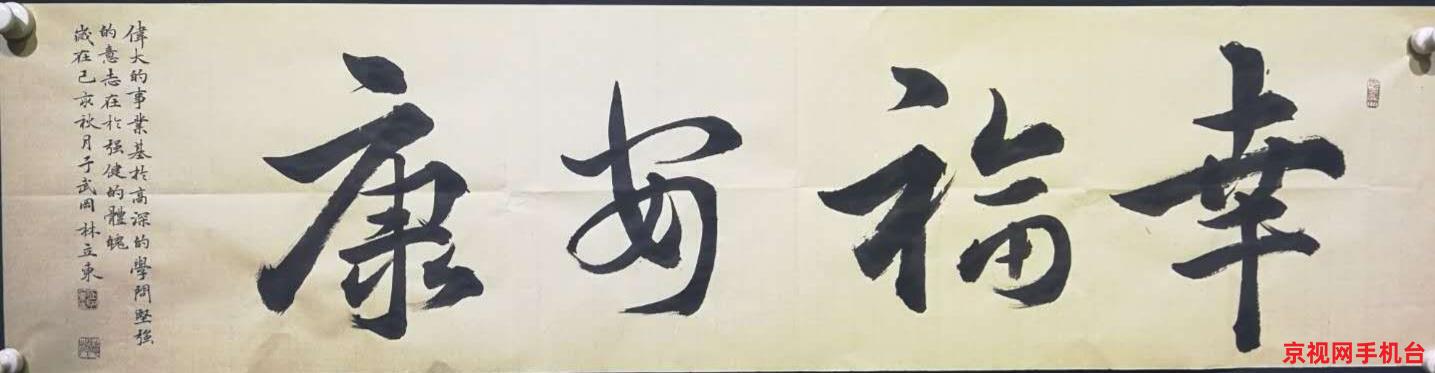 幸福安康
偉大的事業基於高深的學問堅強
的意志在於强健的體魄
歲在己亥秋月于武岡林立東
京视网手机台